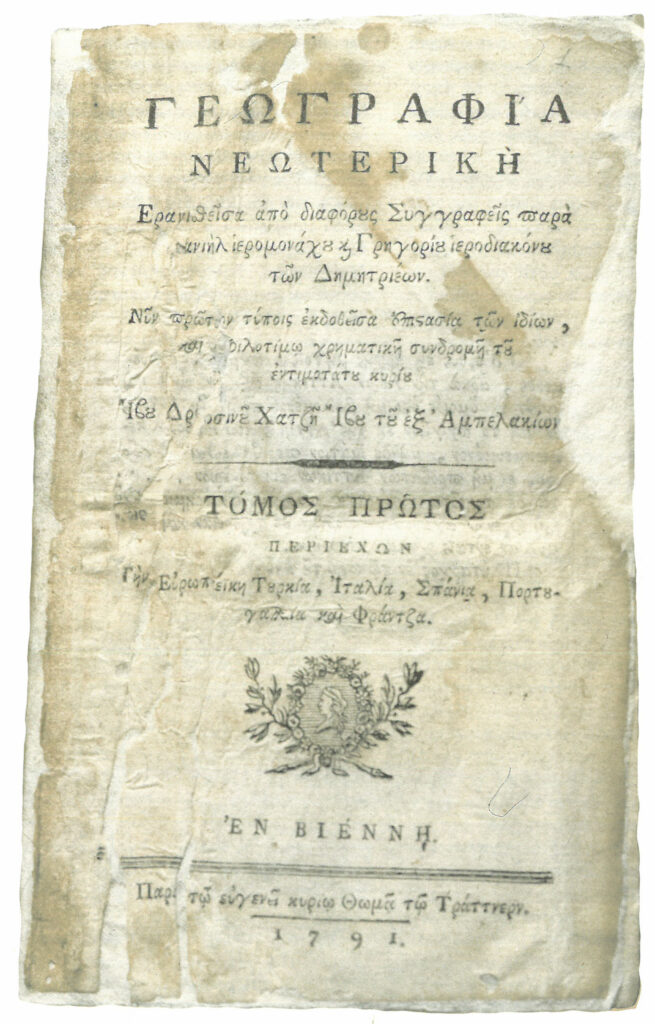 ΓΕΩΓΡΑΦΙΑ
ΝΕΩΤΕΡΙΚῊ
Ερανισθεῖσα ἀπὸ διαφόρȣς Συγγραφεῖς παρὰ
ανιὴλ ἱερομονάχȣ ϗ Γρηγορίȣ ἱεροδιακόνȣ
τῶν Δημητριέων.
Νῦν πρῶτον τύποις ἐκδοθεῖσα ἐπιστασίᾳ τῶν ἰδίων,
καὶ φιλοτίμῳ χρηματικῇ συνδρομῇ τȣ͂
ἐντιμοτάτȣ κυρίȣ
Ἴβȣ Δροσινȣ͂ Χατζῆ Ἴβȣ τȣ͂ ἐξ Ἀμπελακίων
ΤΌΜΟΣ ΠΡΩ͂ΤΟΣ
ΠΕΡΙΈΧΩΝ
Τὴν Εὐρωπαϊκὴ Τȣρκία, Ἰταλία, Σπάνια, Πορτȣ-
γαλλία καὶ Φράντζα.
ἘΝ ΒΙΈΝΝΗ.
Παρὰ τῷ εὐγενεῖ κυρίῳ Θωμᾷ τῷ Τράττνερν.
1791.